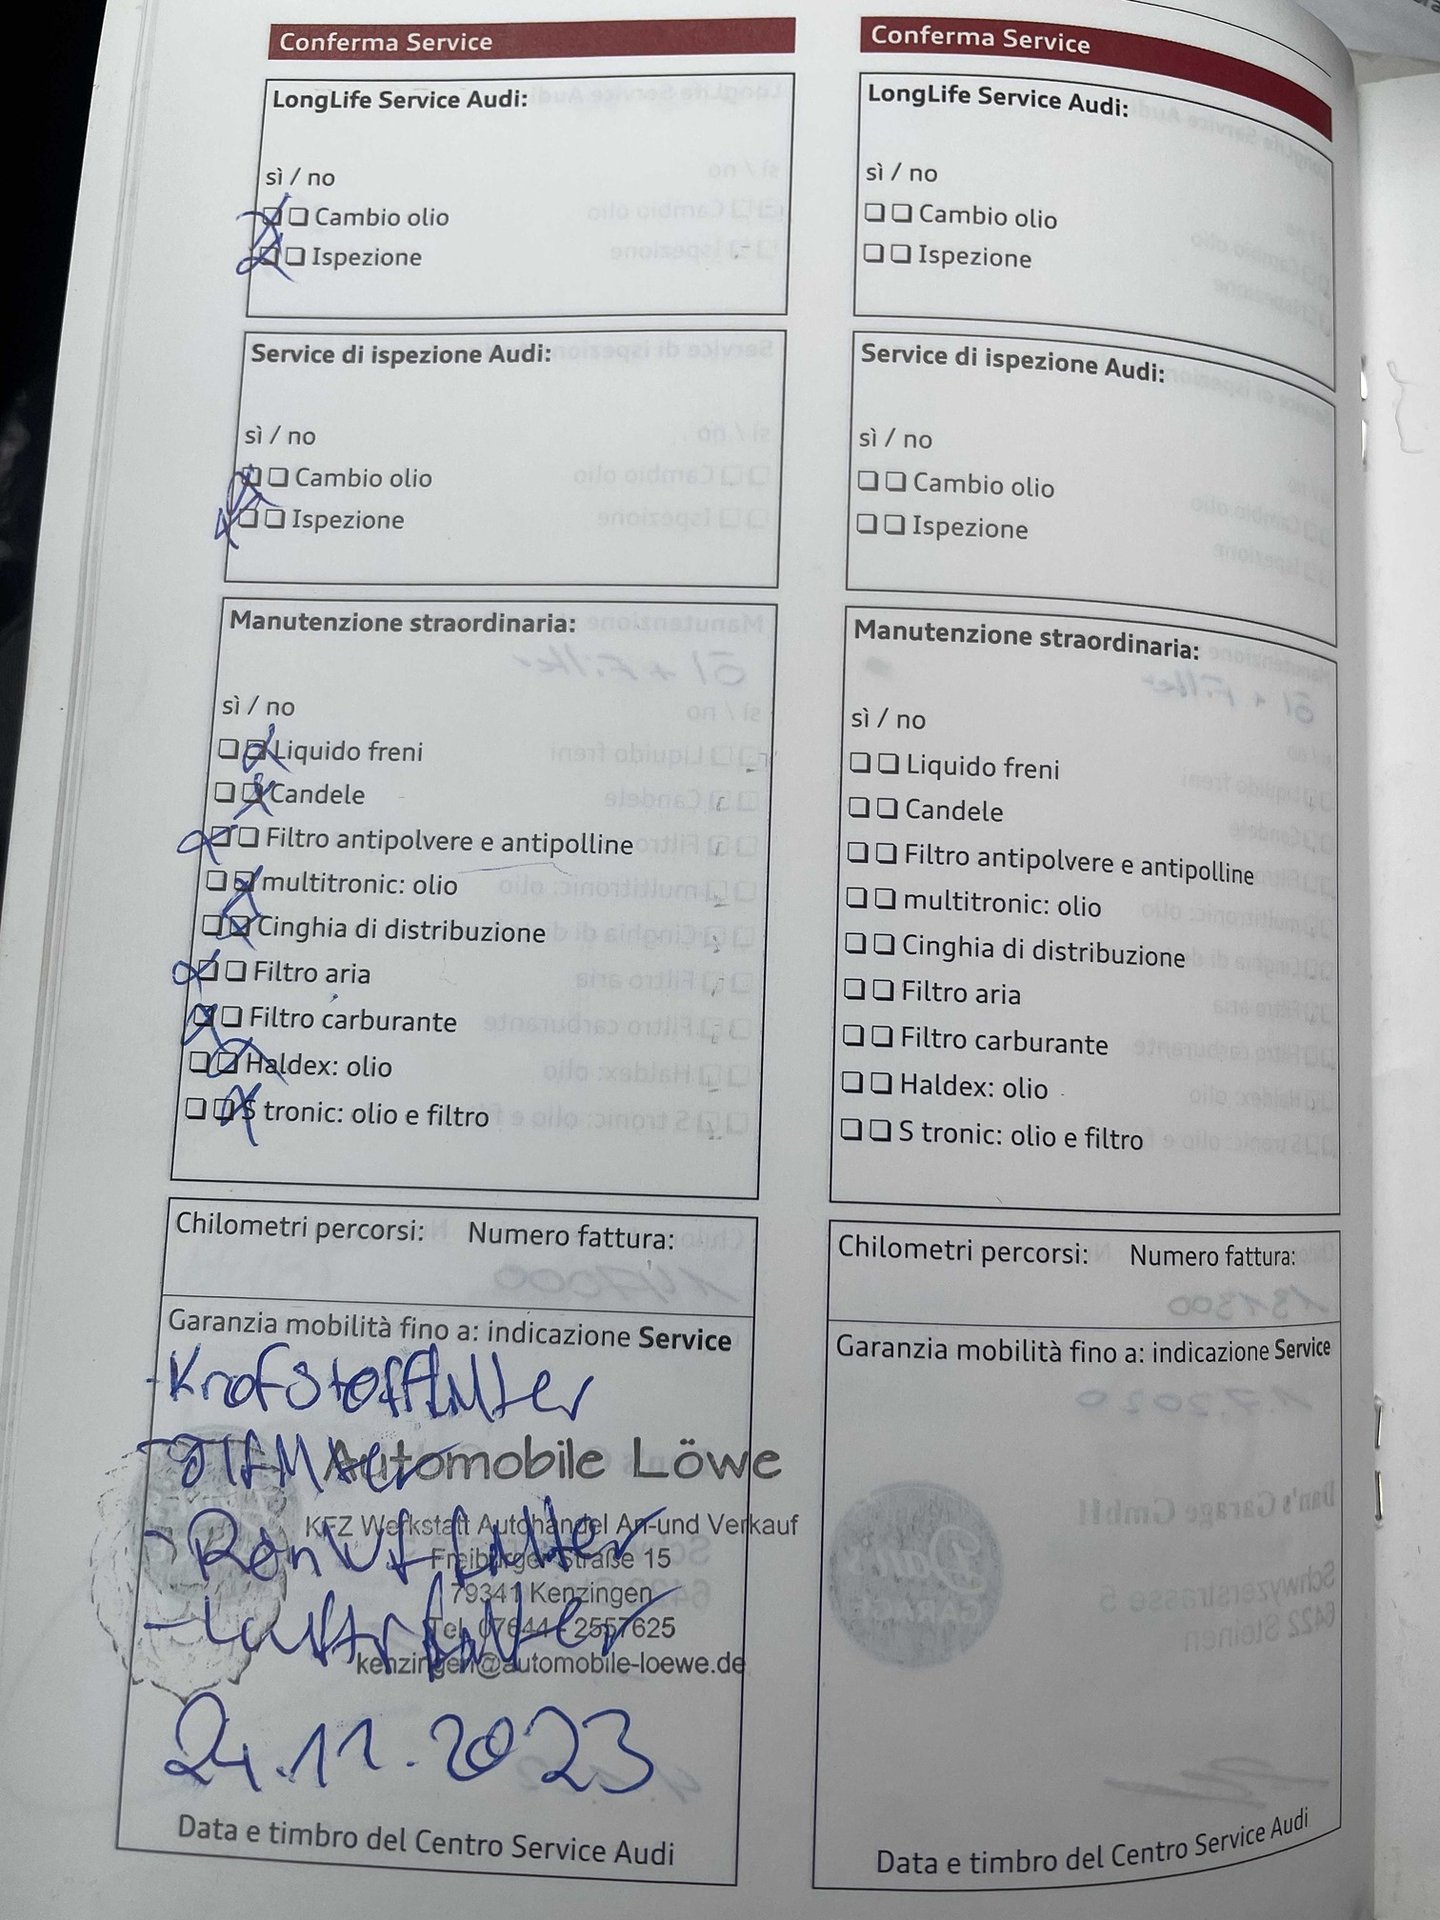 Conferma Service
LongLife Service Audi:
sì / no
❏ ❏ Cambio olio
❏ ❏ Ispezione
Service di ispezione Audi:
sì / no
❏ ❏ Cambio olio
❏ ❏ Ispezione
Manutenzione straordinaria:
sì / no
❏ ❏ Liquido freni
❏ ❏ Candele
❏ ❏ Filtro antipolvere e antipolline
❏ ❏ multitronic: olio
❏ ❏ Cinghia di distribuzione
❏ ❏ Filtro aria
❏ ❏ Filtro carburante
❏ ❏ Haldex: olio
❏ ❏ S tronic: olio e filtro
Chilometri percorsi: Numero fattura:
Garanzia mobilità fino a: indicazione Service
-Krafstofffilter
Automobile Löwe
KFZ Werkstatt Autohandel An-und Verkauf
Freiburger Straße 15
79341 Kenzingen
Tel. 07644 - 2557625
-Luftfilter
kenzingen@automobile-loewe.de
24.11.2023
Data e timbro del Centro Service Audi
Conferma Service
LongLife Service Audi:
sì / no
❏ ❏ Cambio olio
❏ ❏ Ispezione
Service di ispezione Audi:
sì / no
❏ ❏ Cambio olio
❏ ❏ Ispezione
Manutenzione straordinaria:
sì / no
❏ ❏ Liquido freni
❏ ❏ Candele
❏ ❏ Filtro antipolvere e antipolline
❏ ❏ multitronic: olio
❏ ❏ Cinghia di distribuzione
❏ ❏ Filtro aria
❏ ❏ Filtro carburante
❏ ❏ Haldex: olio
❏ ❏ S tronic: olio e filtro
Chilometri percorsi: Numero fattura:
Garanzia mobilità fino a: indicazione Service
Data e timbro del Centro Service Audi